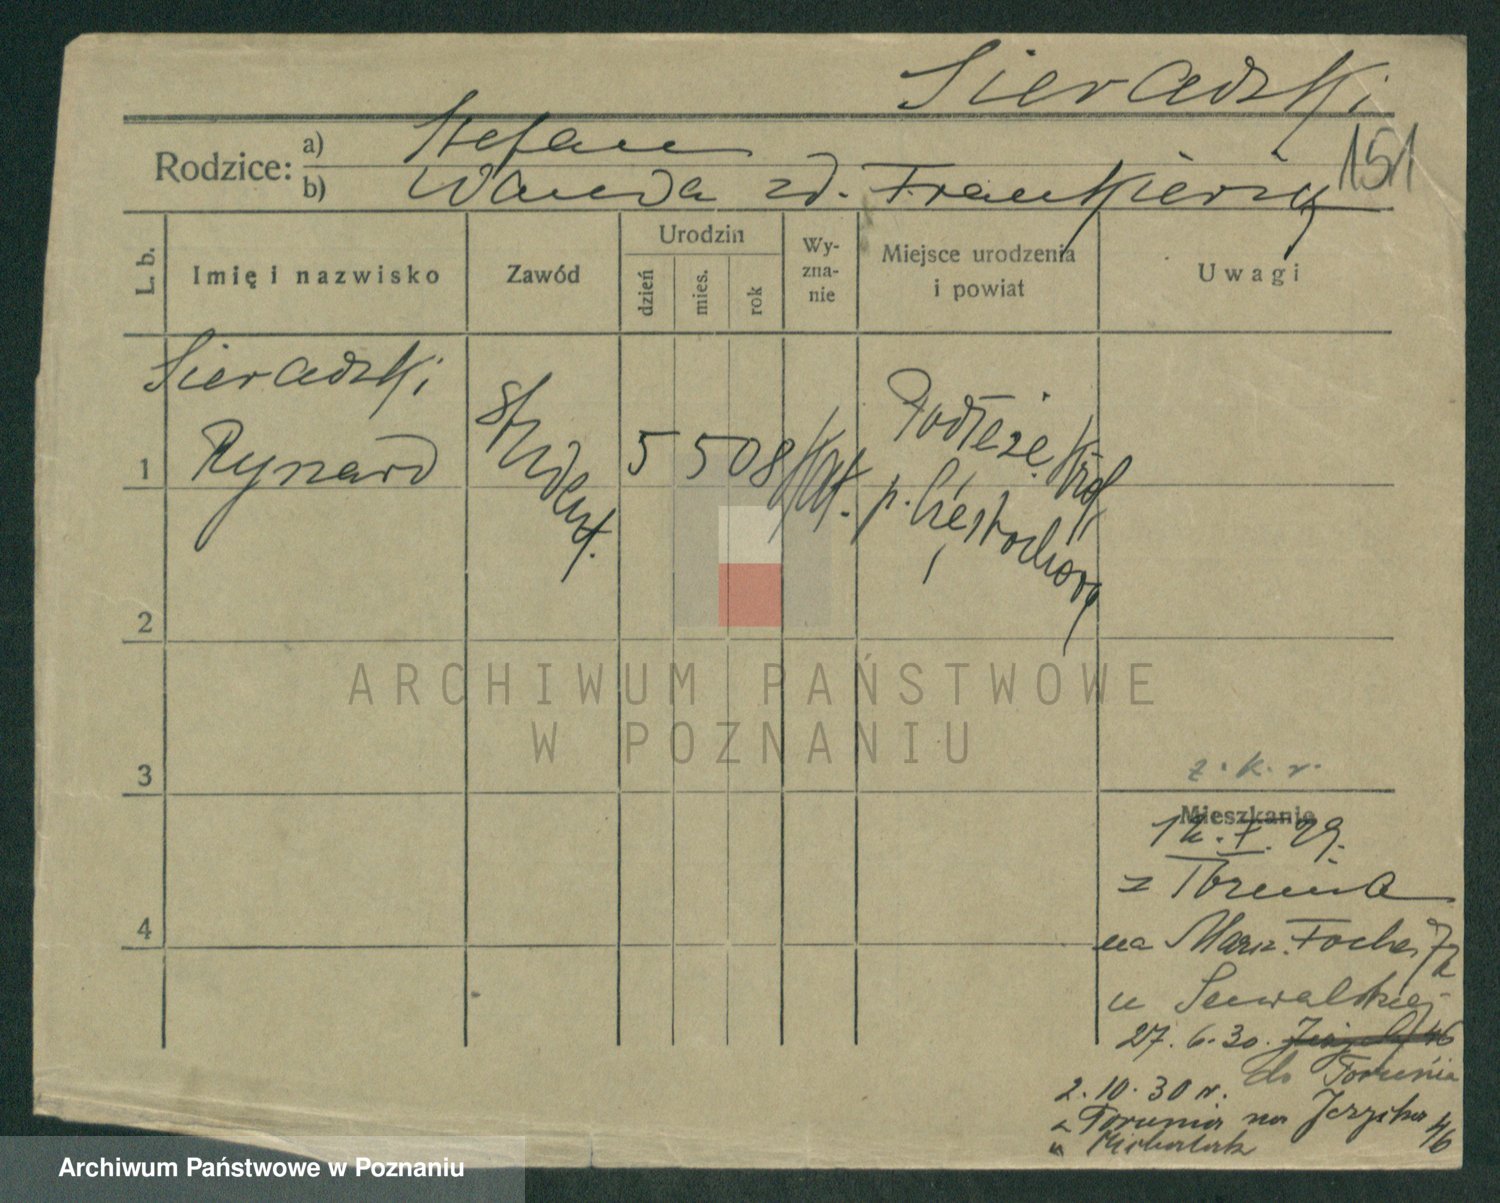 Sieradzki
151
Rodzice: a) Stefan
b) Wanda zd.
L. b.
Imię i nazwisko
Zawód
Urodzin
dzień
mies.
rok
Wy-
zna-
nie
Miejsce urodzenia
i powiat
Uwagi
Sieradzki
1 Rynard
student.
5 5 08
Kat.
Podłęże Król
p. Częstochowa
2
3
4
ARCHIWUM PAŃSTWOWE
W POZNANIU
z. k. r.
Mieszkanie
12. X. 29.
z Torunia
na Marsz. Focha 72
u
27. 6. 30. 46
do Torunia
2. 10. 30 r.
z Torunia na 4/6
u Michalak
Archiwum Państwowe w Poznaniu